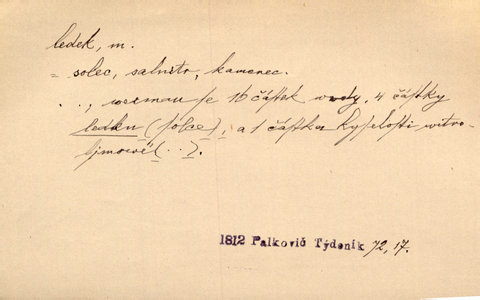 ledek, m.
= solec, salnitr, kamenec.
. . , wezmau se 16 částek wody, 4 částky
ledku (solce), a 1 částka kyselosti witro-
ljmowé (. . ).
1812 Palkovič Týdeník 72, 17.